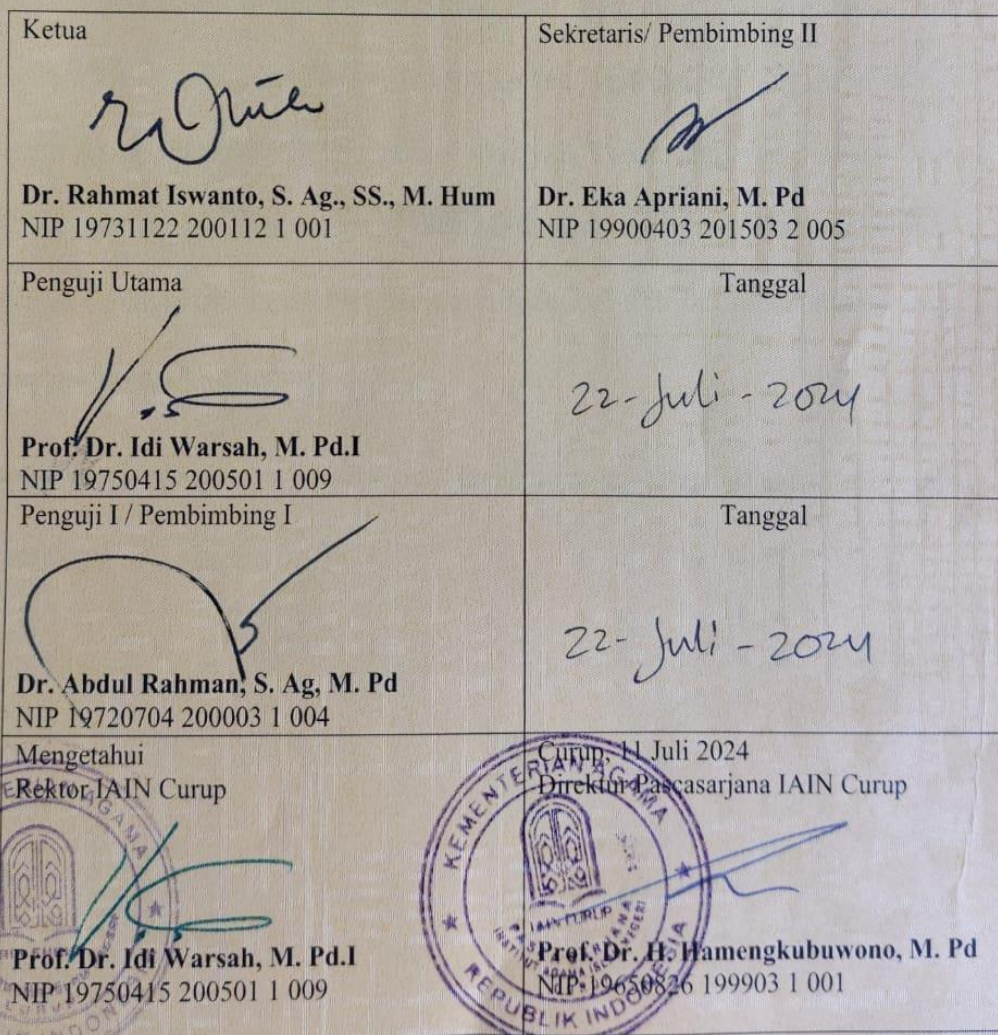 Ketua
Dr. Rahmat Iswanto, S. Ag., SS., M. Hum
NIP 19731122 200112 1 001
Sekretaris/ Pembimbing II
Dr. Eka Apriani, M. Pd
NIP 19900403 201503 2 005
Penguji Utama
Prof. Dr. Idi Warsah, M. Pd.I
NIP 19750415 200501 1 009
Tanggal
22-Juli-2024
Penguji I / Pembimbing I
Dr. Abdul Rahman, S. Ag, M. Pd
NIP 19720704 200003 1 004
Tanggal
22-Juli-2024
Mengetahui
Rektor IAIN Curup
Prof. Dr. Idi Warsah, M. Pd.I
NIP 19750415 200501 1 009
Curup, 11 Juli 2024
Direktur Pascasarjana IAIN Curup
Prof. Dr. H. Hamengkubuwono, M. Pd
NIP 19650826 199903 1 001
KEMENTERIAN AGAMA
IAIN CURUP
PASCASARJANA
INSTITUT AGAMA ISLAM NEGERI
REPUBLIK INDONESIA